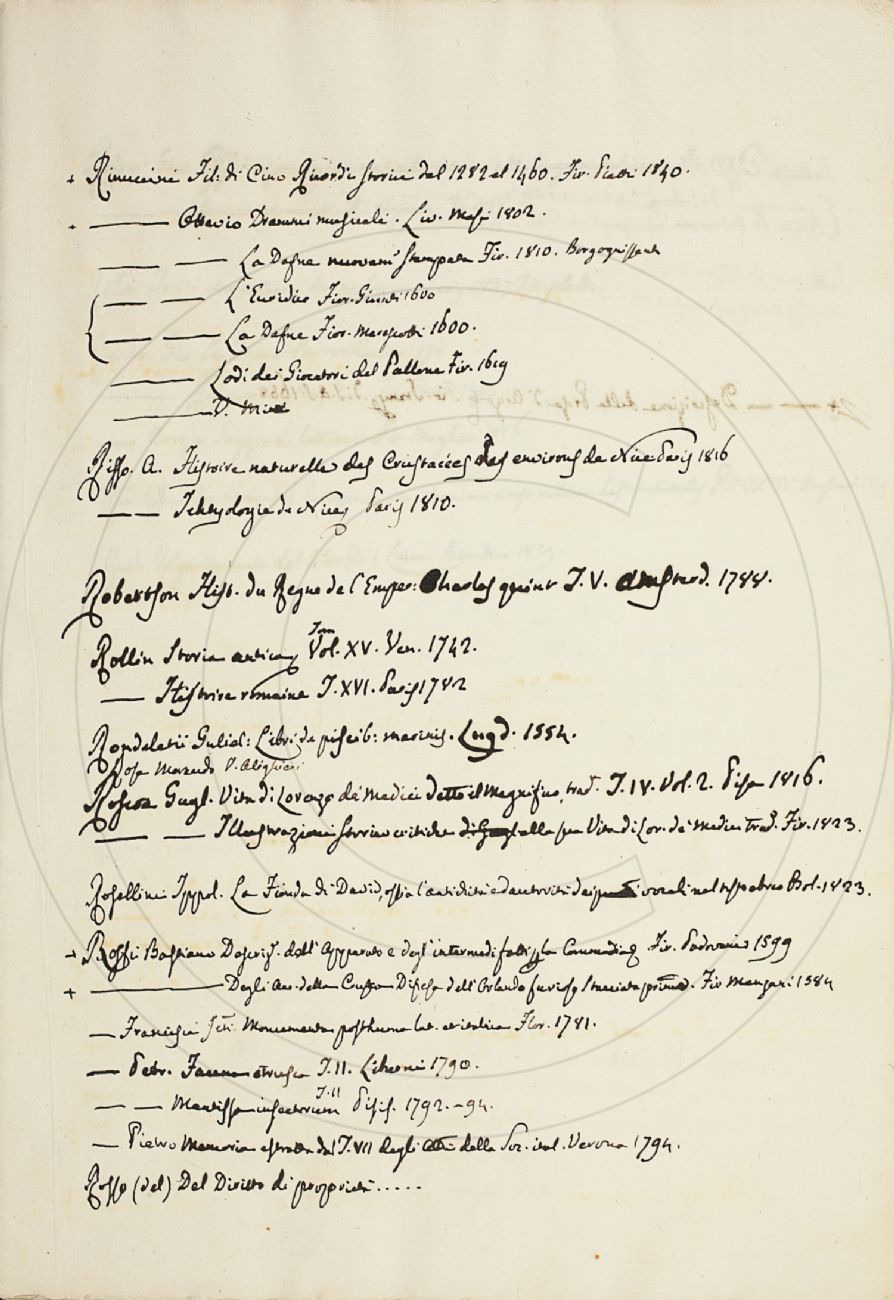 + Rinuccini Fil: di Cino Ricordi Storici dal 1282 al 1460. Fir. Piatti 1840.
· —— Ottavio Drammi musicali. Liv. Masi 1802.
—— —— La Dafne nuovam. Stampata Fir. 1810.
—— —— L'Euridice Fior. Giunti 1600
—— —— La Dafne Fior. Marescotti 1600.
—— Lodi dei Giocatori del Pallone Fir. 1619
—— V.
Risso. A. Histoire naturelle des Crustacées des environs de Nice Paris 1816
—— —— Ichtyologie de Nice, Paris 1810.
Robertson Hist. du Regne de l'Emper: Charles quint T. V. Amsterd. 1788.
Rollin Storia antica, Tom Vol. XV. Ven. 1742.
—— Histoire romaine T. XVI. Paris 1782
Rondeletii Guliel: Libri de piscib: marinis. Lugd. 1554.
Rosa Morando V. Alighieri
Roscoe Gugl. Vita di Lorenzo de' Medici detto il Magnifico, trad. T. IV. Vol. 2. Pisa 1816.
—— —— Illustrazioni storico critiche alla sua Vita di Lor. de' Medici trad. Fir. 1823.
Rosellini Ippol. La Fionda di David, ossia l'antichità ed autorità dei vocali nel testo ebreo Bol. 1823.
+ Rossi Bastiano Descriz. dell' Apparato e degl' intermedi fatti la Commedia Fir. Padovani 1599
+ —— Degli Acc. della Crusca Difesa dell' Orlando furioso Stacciata prima. Fir Manzani 1584
— Francisci Monumenta posthuma lat. et italica Flor. 1781.
— Petr. Fauna etrusca T. II. Liburni 1790.
— — Mantissa insectorum T. II Pisis. 1792.-94.
— Pietro Memoria estratta dal T. VII degli Atti della Soc. ital. Verona 1794.
Rosso (del) Del Diritto di proprietà.....